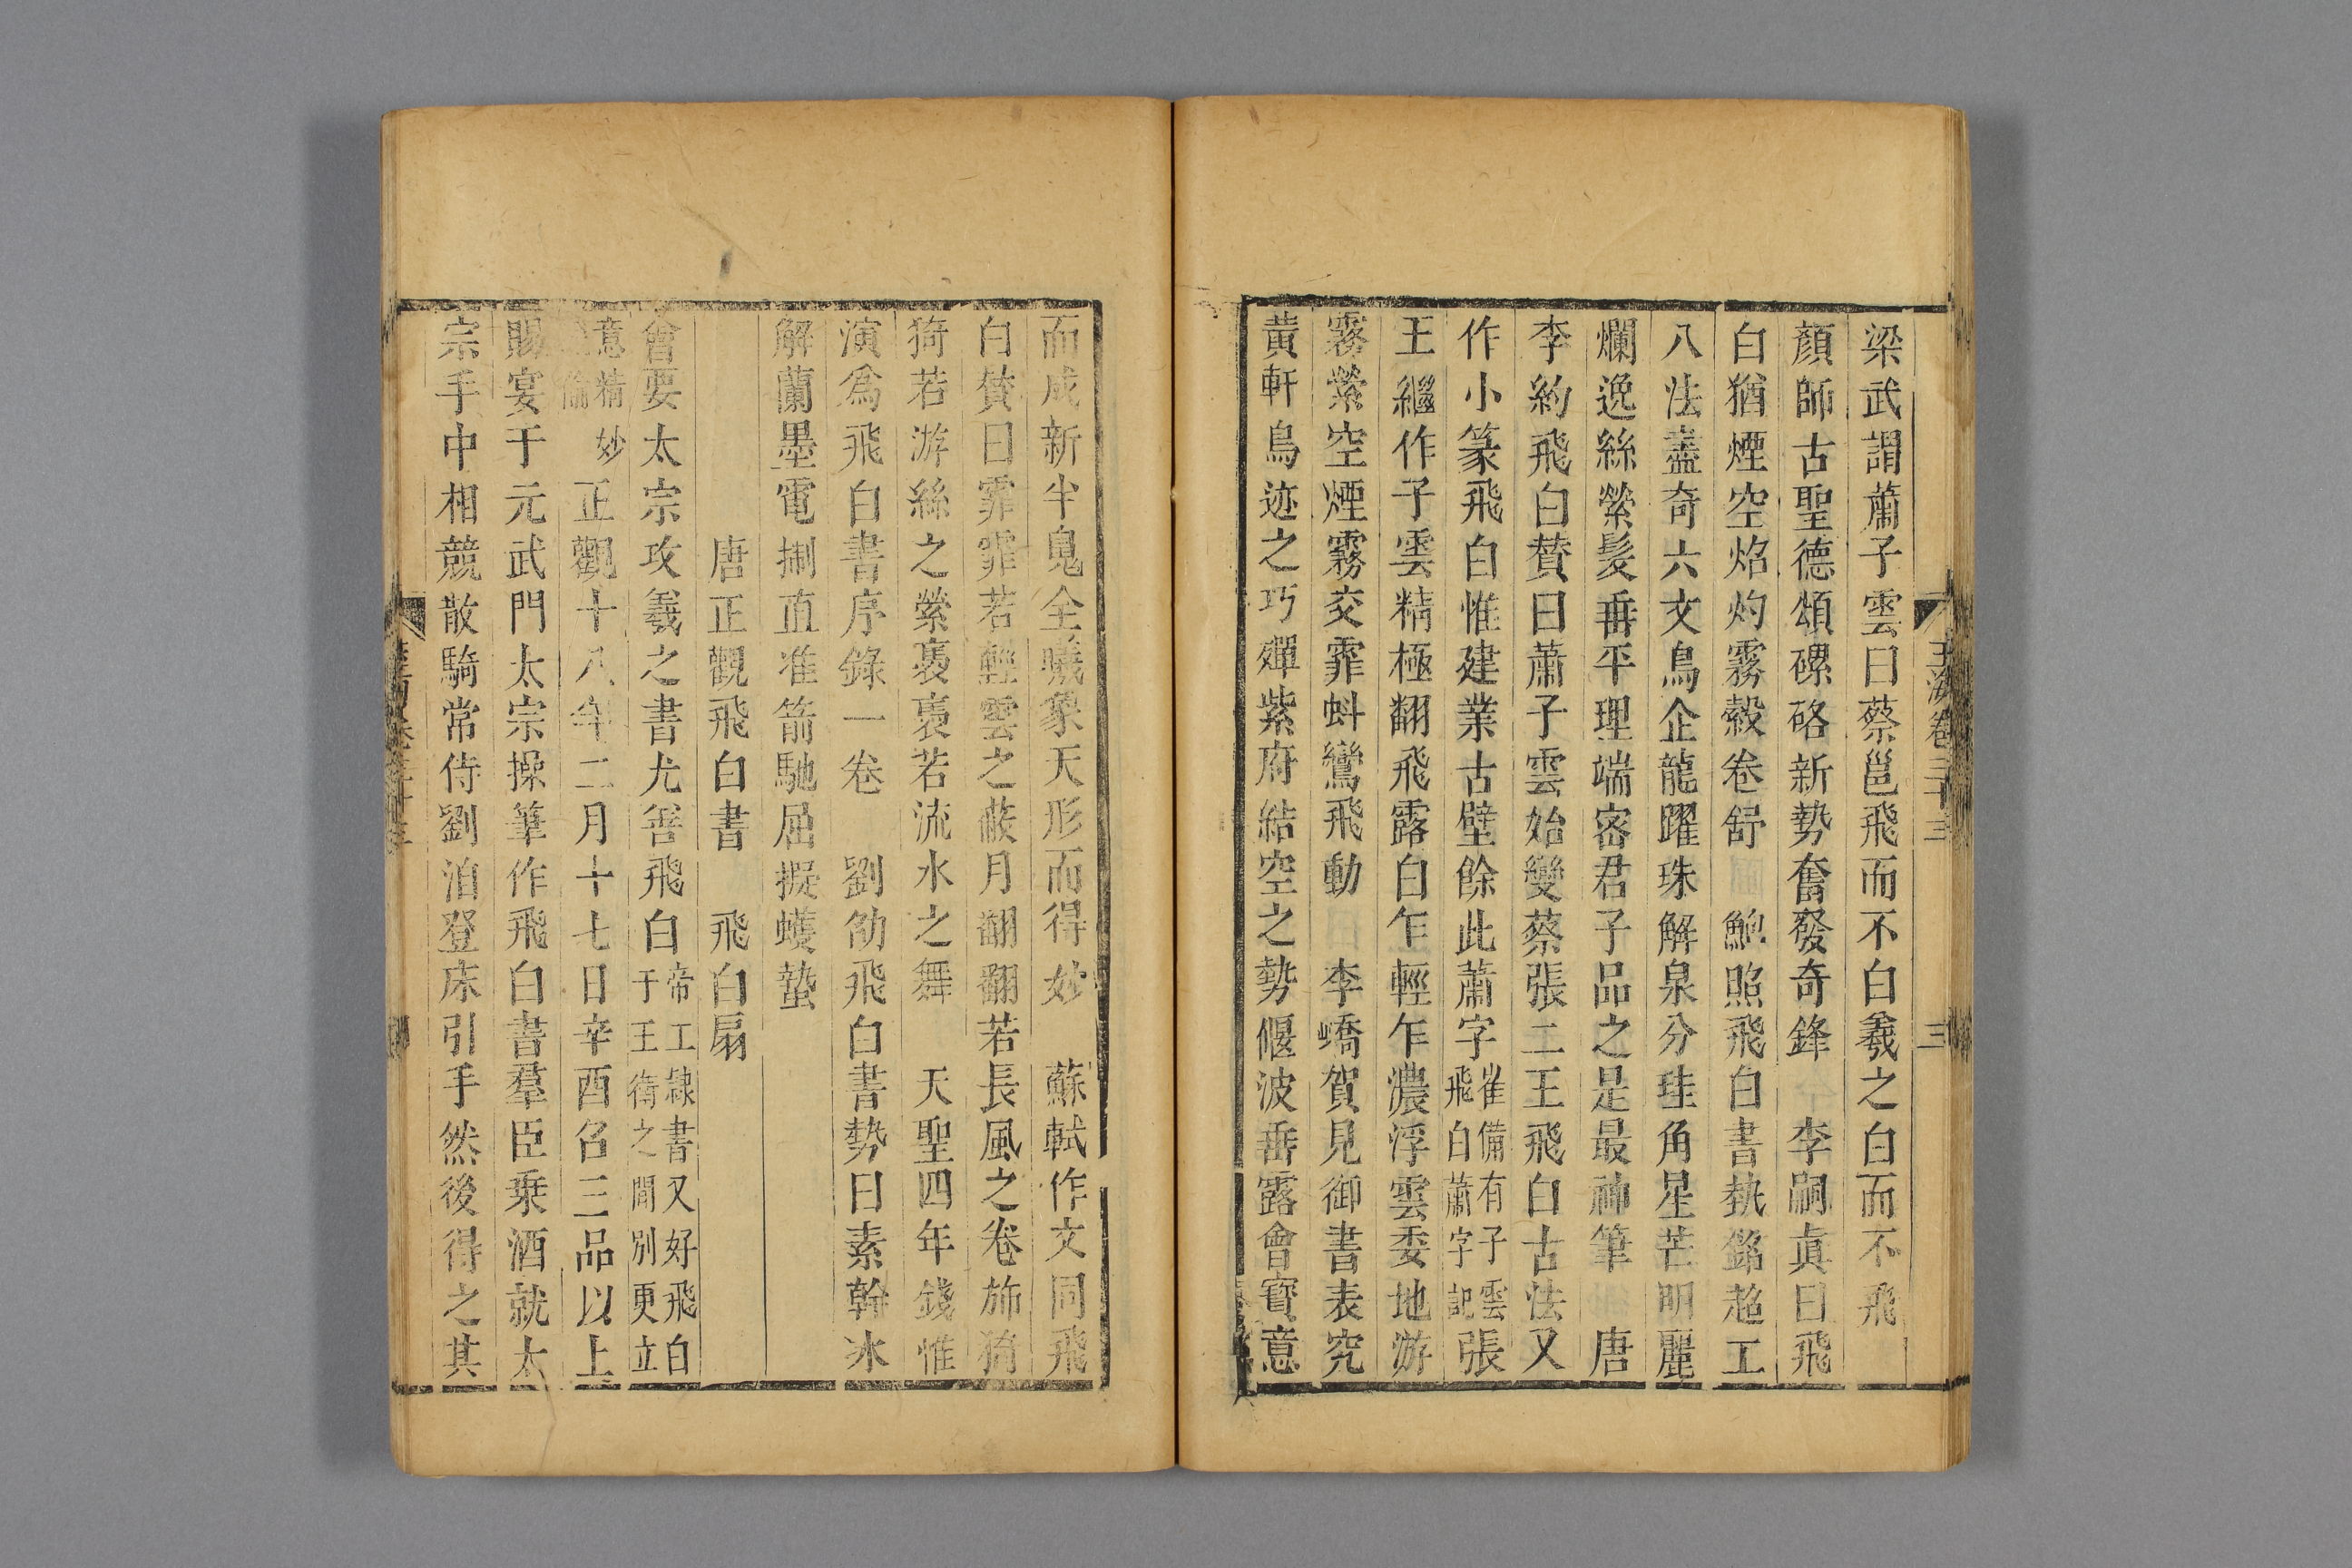 玉海卷三十三
三
梁武謂蕭子雲曰蔡邕飛而不白羲之白而不飛
顏師古聖德頌磥硌新勢奮發奇鋒 李嗣真曰飛
白猶煙空焰灼霧縠卷舒 鮑照飛白書埶銘超工
八法盡奇六文鳥企龍躍珠解泉分珪角星芒明麗
爛逸絲縈髮垂平理端密君子品之是最神筆 唐
李約飛白贊曰蕭子雲始變蔡張二王飛白古法又
作小篆飛白惟建業古壁餘此蕭字崔備有子雲飛白蕭字記張
王繼作子雲精極翻飛露白乍輕乍濃浮雲委地游
霧縈空煙霧交霏蚪鸞飛動 李嶠賀見御書表究
黃軒鳥迹之巧殫紫府結空之勢偃波垂露會寶意
而成新半鬼全曦象天形而得妙 蘇軾作文同飛
白贊曰霏霏若輕雲之蔽月翻翻若長風之卷旆猗
猗若游絲之縈裊裊若流水之舞 天聖四年錢惟
演為飛白書序錄一卷 劉劭飛白書勢曰素幹冰
解蘭墨電掣直准箭馳屈擬蠖蟄
唐正觀飛白書 飛白扇
會要太宗攻羲之書尤善飛白帝工隸書又好飛白于王衛之間別更立
意精妙倫正觀十八年二月十七日辛酉召三品以上
賜宴于元武門太宗操筆作飛白書羣臣乘酒就太
宗手中相競散騎常侍劉洎登床引手然後得之其